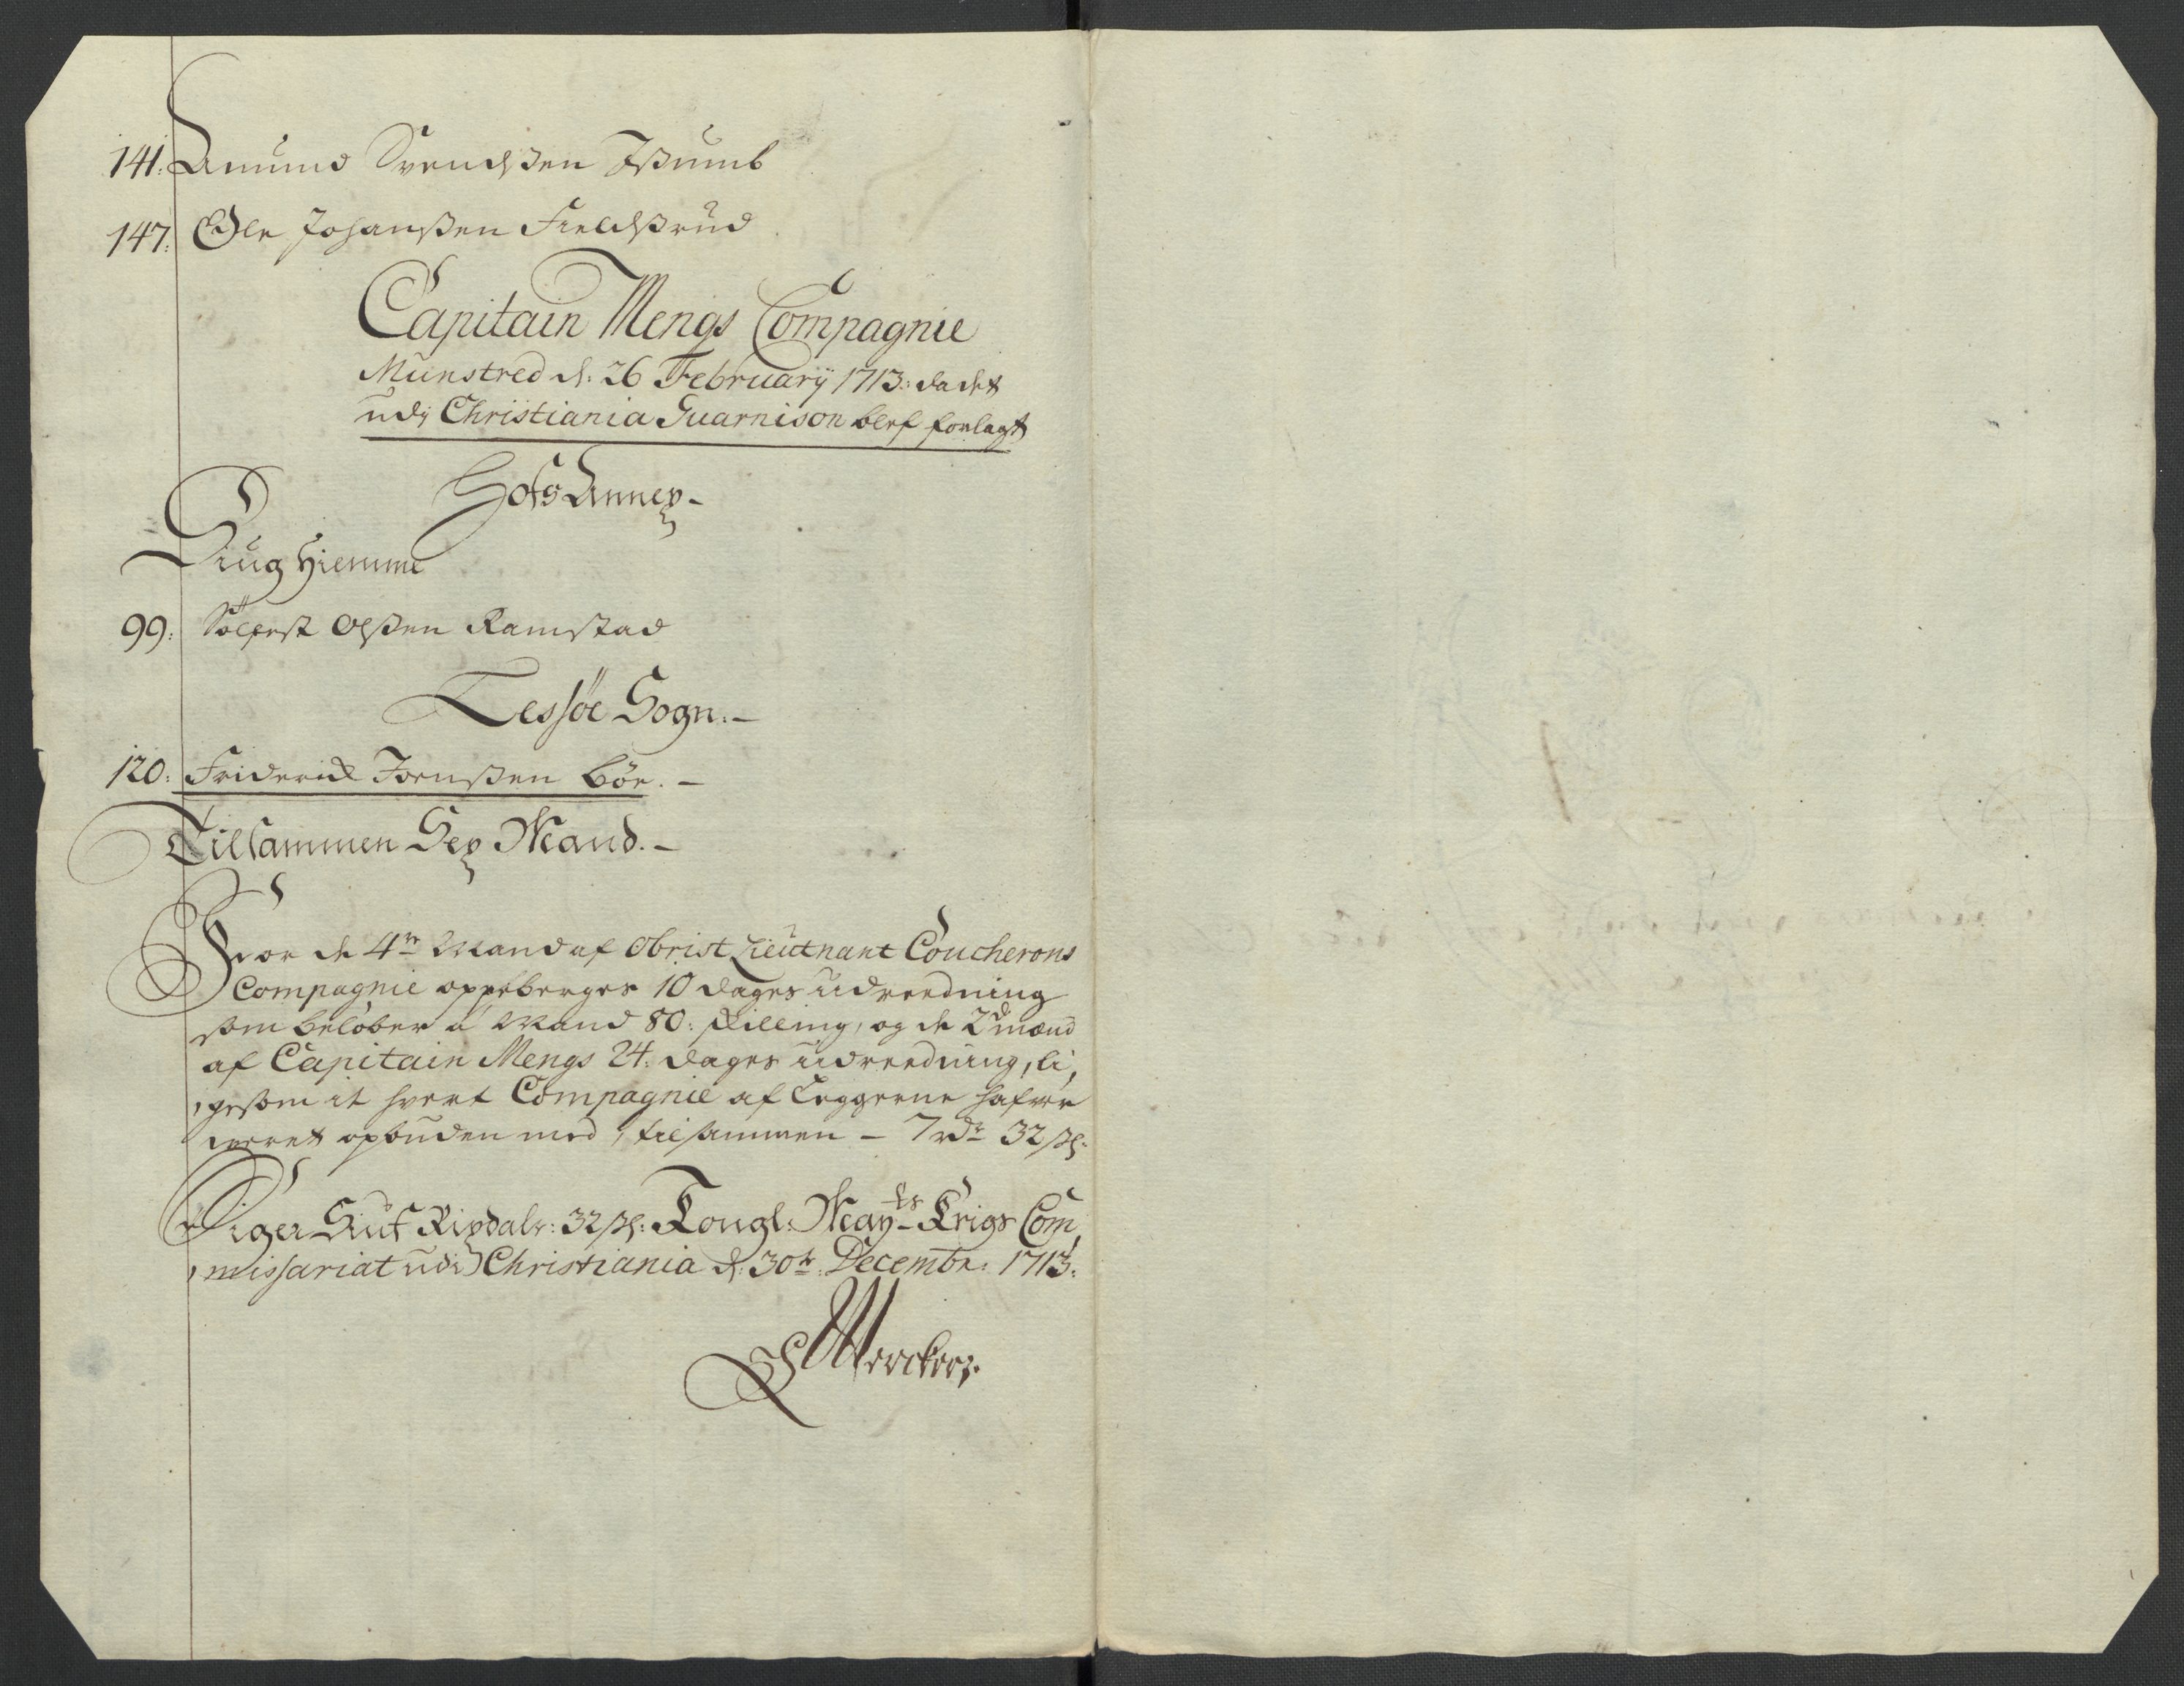 141: Amund Svendsen Isumb
147: Ole Johanßen Fieldstrud
Capitain Mengs Compagnie
Munstred d: 26 February 1713: da det
udj Christiania Guarnison blef forlagt
Hofs Annex -
Siug Hiemme
99: Sölfest Olßen Ramstad
Lessöe Sogn. -
120: Friderich Joenßen Böe. -
Tilsammen Sex Mand. -
Hvor de 4re Mand af Obrist Lieutnant Coucherons
Compagnie oppeberges 10 dages udreedning
som beløber á Mand 80: skilling, og de 2de mænd
af Capitain Mengs 24: dages udreedning, li,
,gesom it hvert Compagnie af Leggerne hafver
veret opbuden med, tilsammen - 7 rdr 32 sk:
Siger Siuf Rixdalr: 32 sk: Kongl: Mayts Krigs Com,
,missariat udi Christiania d: 30te Decembr: 1713: